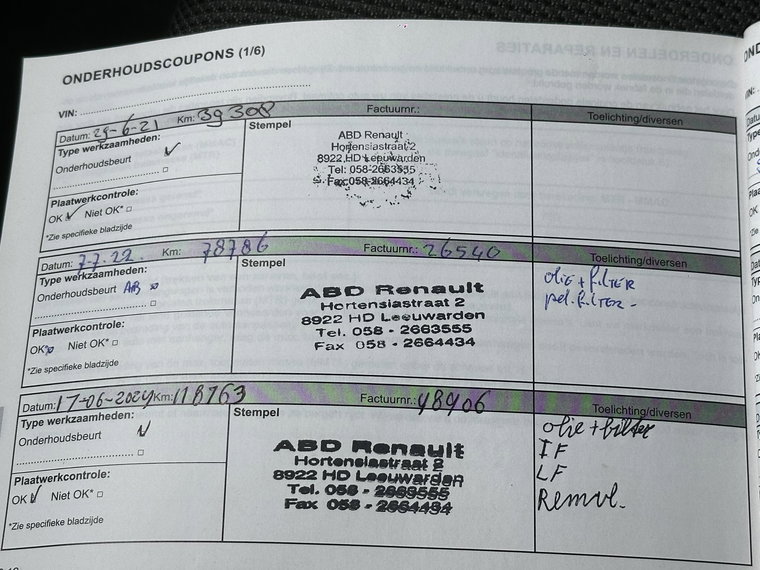 ONDERHOUDSCOUPONS (1/6)
VIN:
Datum: 29-6-21 Km: 39308 Factuurnr.: Toelichting/diversen
Type werkzaamheden:
Onderhoudsbeurt
Plaatwerkcontrole:
OK Niet OK*
*Zie specifieke bladzijde
Stempel
ABD Renault
Hortensiastraat 2
8922 HD Leeuwarden
Tel: 058-2663555
Fax 058-2664434
Datum: 7-7-22. Km: 78786 Factuurnr.: 26540 Toelichting/diversen
Type werkzaamheden:
Onderhoudsbeurt AB
Plaatwerkcontrole:
OK* Niet OK*
*Zie specifieke bladzijde
Stempel
ABD Renault
Hortensiastraat 2
8922 HD Leeuwarden
Tel. 058 - 2663555
Fax 058 - 2664434
olie + filter
pol. filter -
Datum: 17-06-2024 Km: 118763 Factuurnr.: 48406 Toelichting/diversen
Type werkzaamheden:
Onderhoudsbeurt
Plaatwerkcontrole:
OK Niet OK*
*Zie specifieke bladzijde
Stempel
ABD Renault
Hortensiastraat 2
8922 HD Leeuwarden
Tel. 058 - 2663555
Fax 058 - 2664434
olie + filter
IF
LF
Remvl.